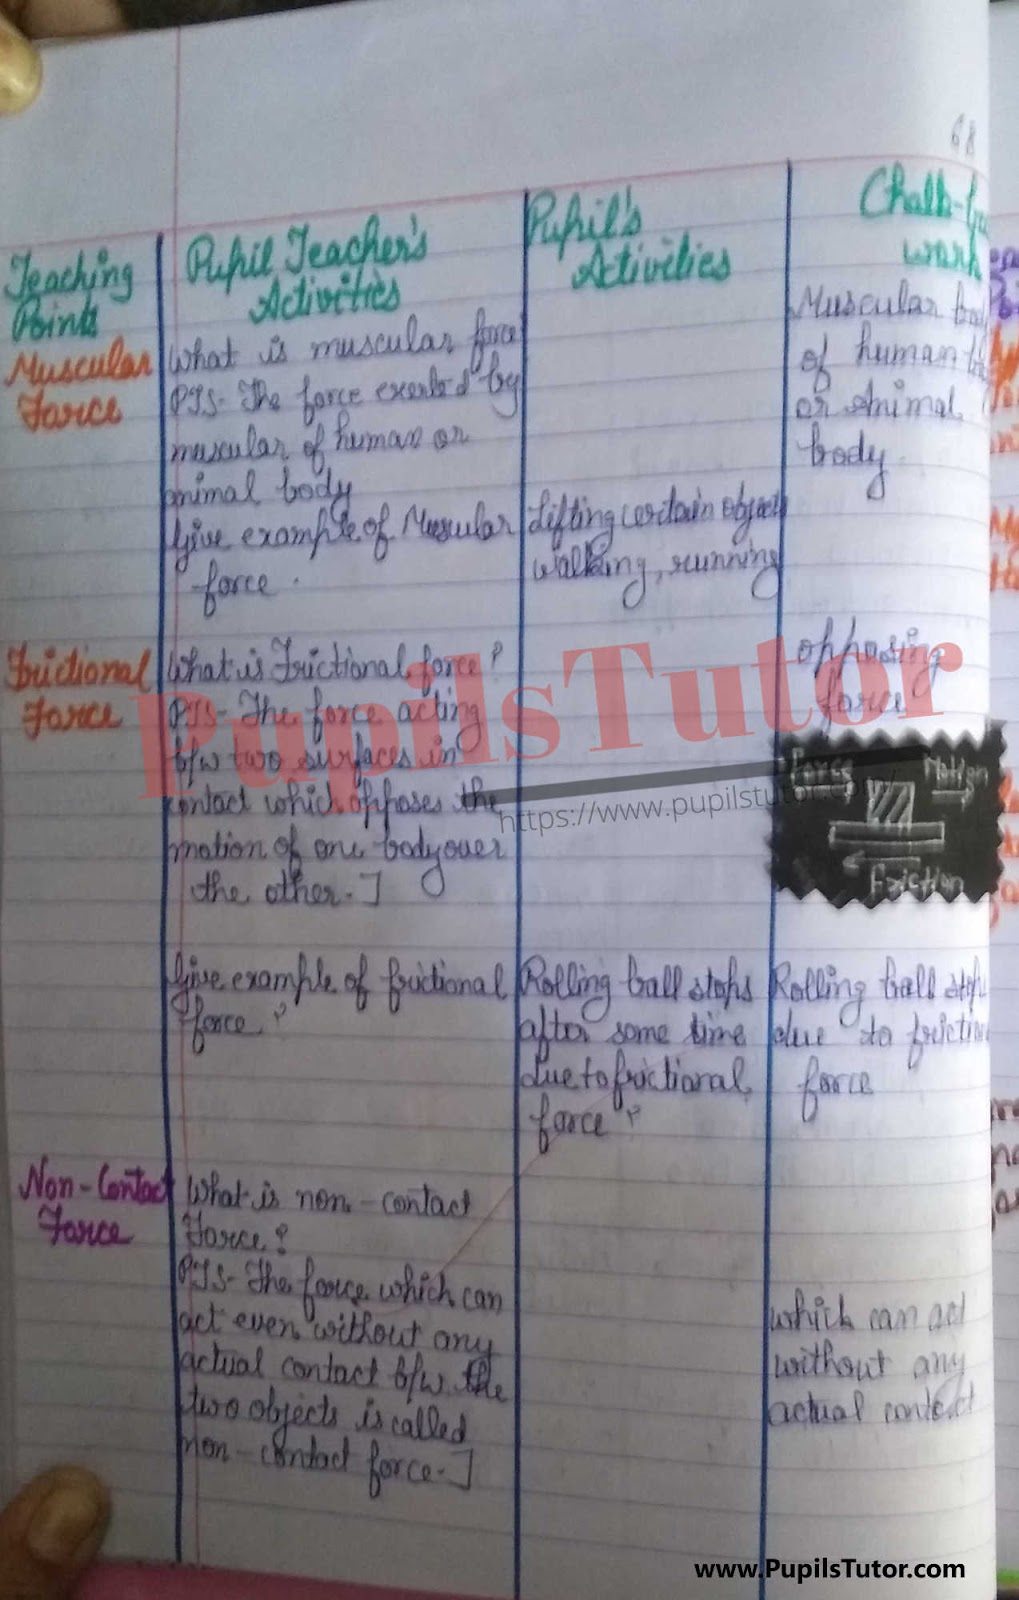 68
Teaching
Points
Pupil Teacher's
Activities
Pupil's
Activities
Chalk-
work
Muscular
Force
What is muscular force
PTS- The force exerted by
muscular of human or
animal body
Give example of Muscular
force.
Lifting certain object
walking, running
Muscular
of human
or Animal
body
Frictional
Force
What is Frictional force?
PTS- The force acting
b/w two surfaces in
contact which opposes the
motion of one body over
the other.]
opposing
force
Force Motion
Friction
Give example of frictional
force?
Rolling ball stops
after some time
due to frictional
force
Rolling ball stop
due to friction
force
Non-Contact
Force
What is non-contact
Force?
PTS- The force which can
act even without any
actual contact b/w the
two objects is called
non-contact force.]
which can act
without any
actual contact
PupilsTutor
https://www.pupilstutor.com/
www.PupilsTutor.com